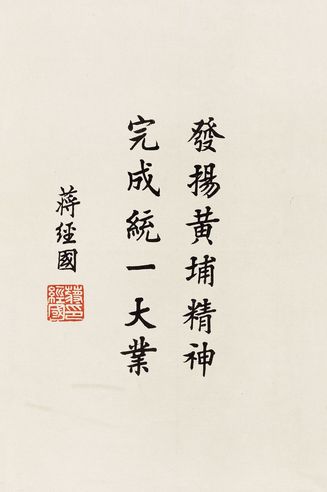 發揚黃埔精神
完成統一大業
蔣經國
蔣經國印